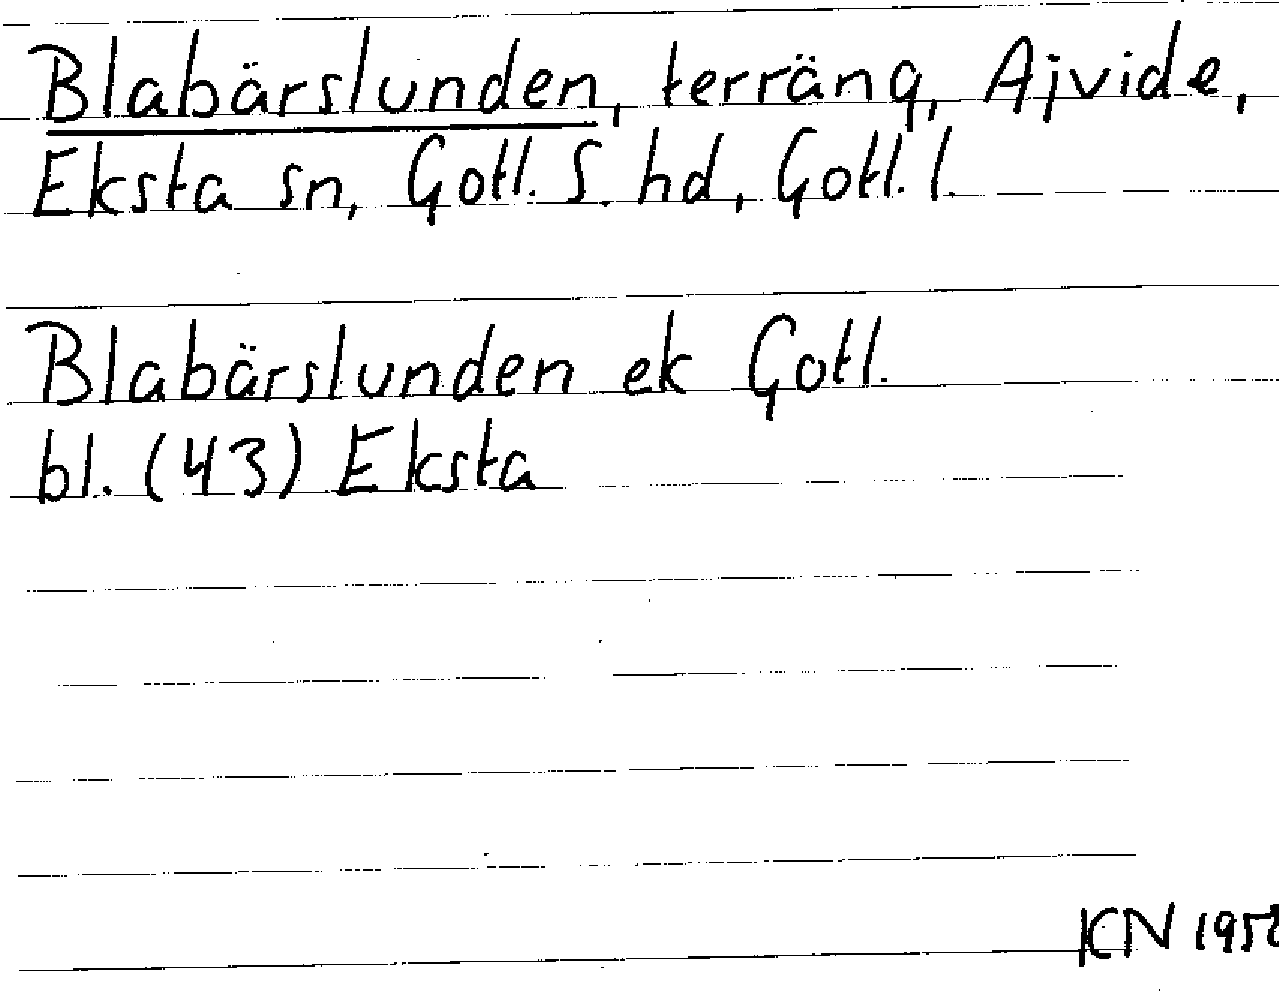 Blabärslunden, terräng, Ajvide,
Eksta sn, Gotl. S. hd, Gotl. l.
Blabärslunden ek Gotl.
bl. (43) Eksta
KN